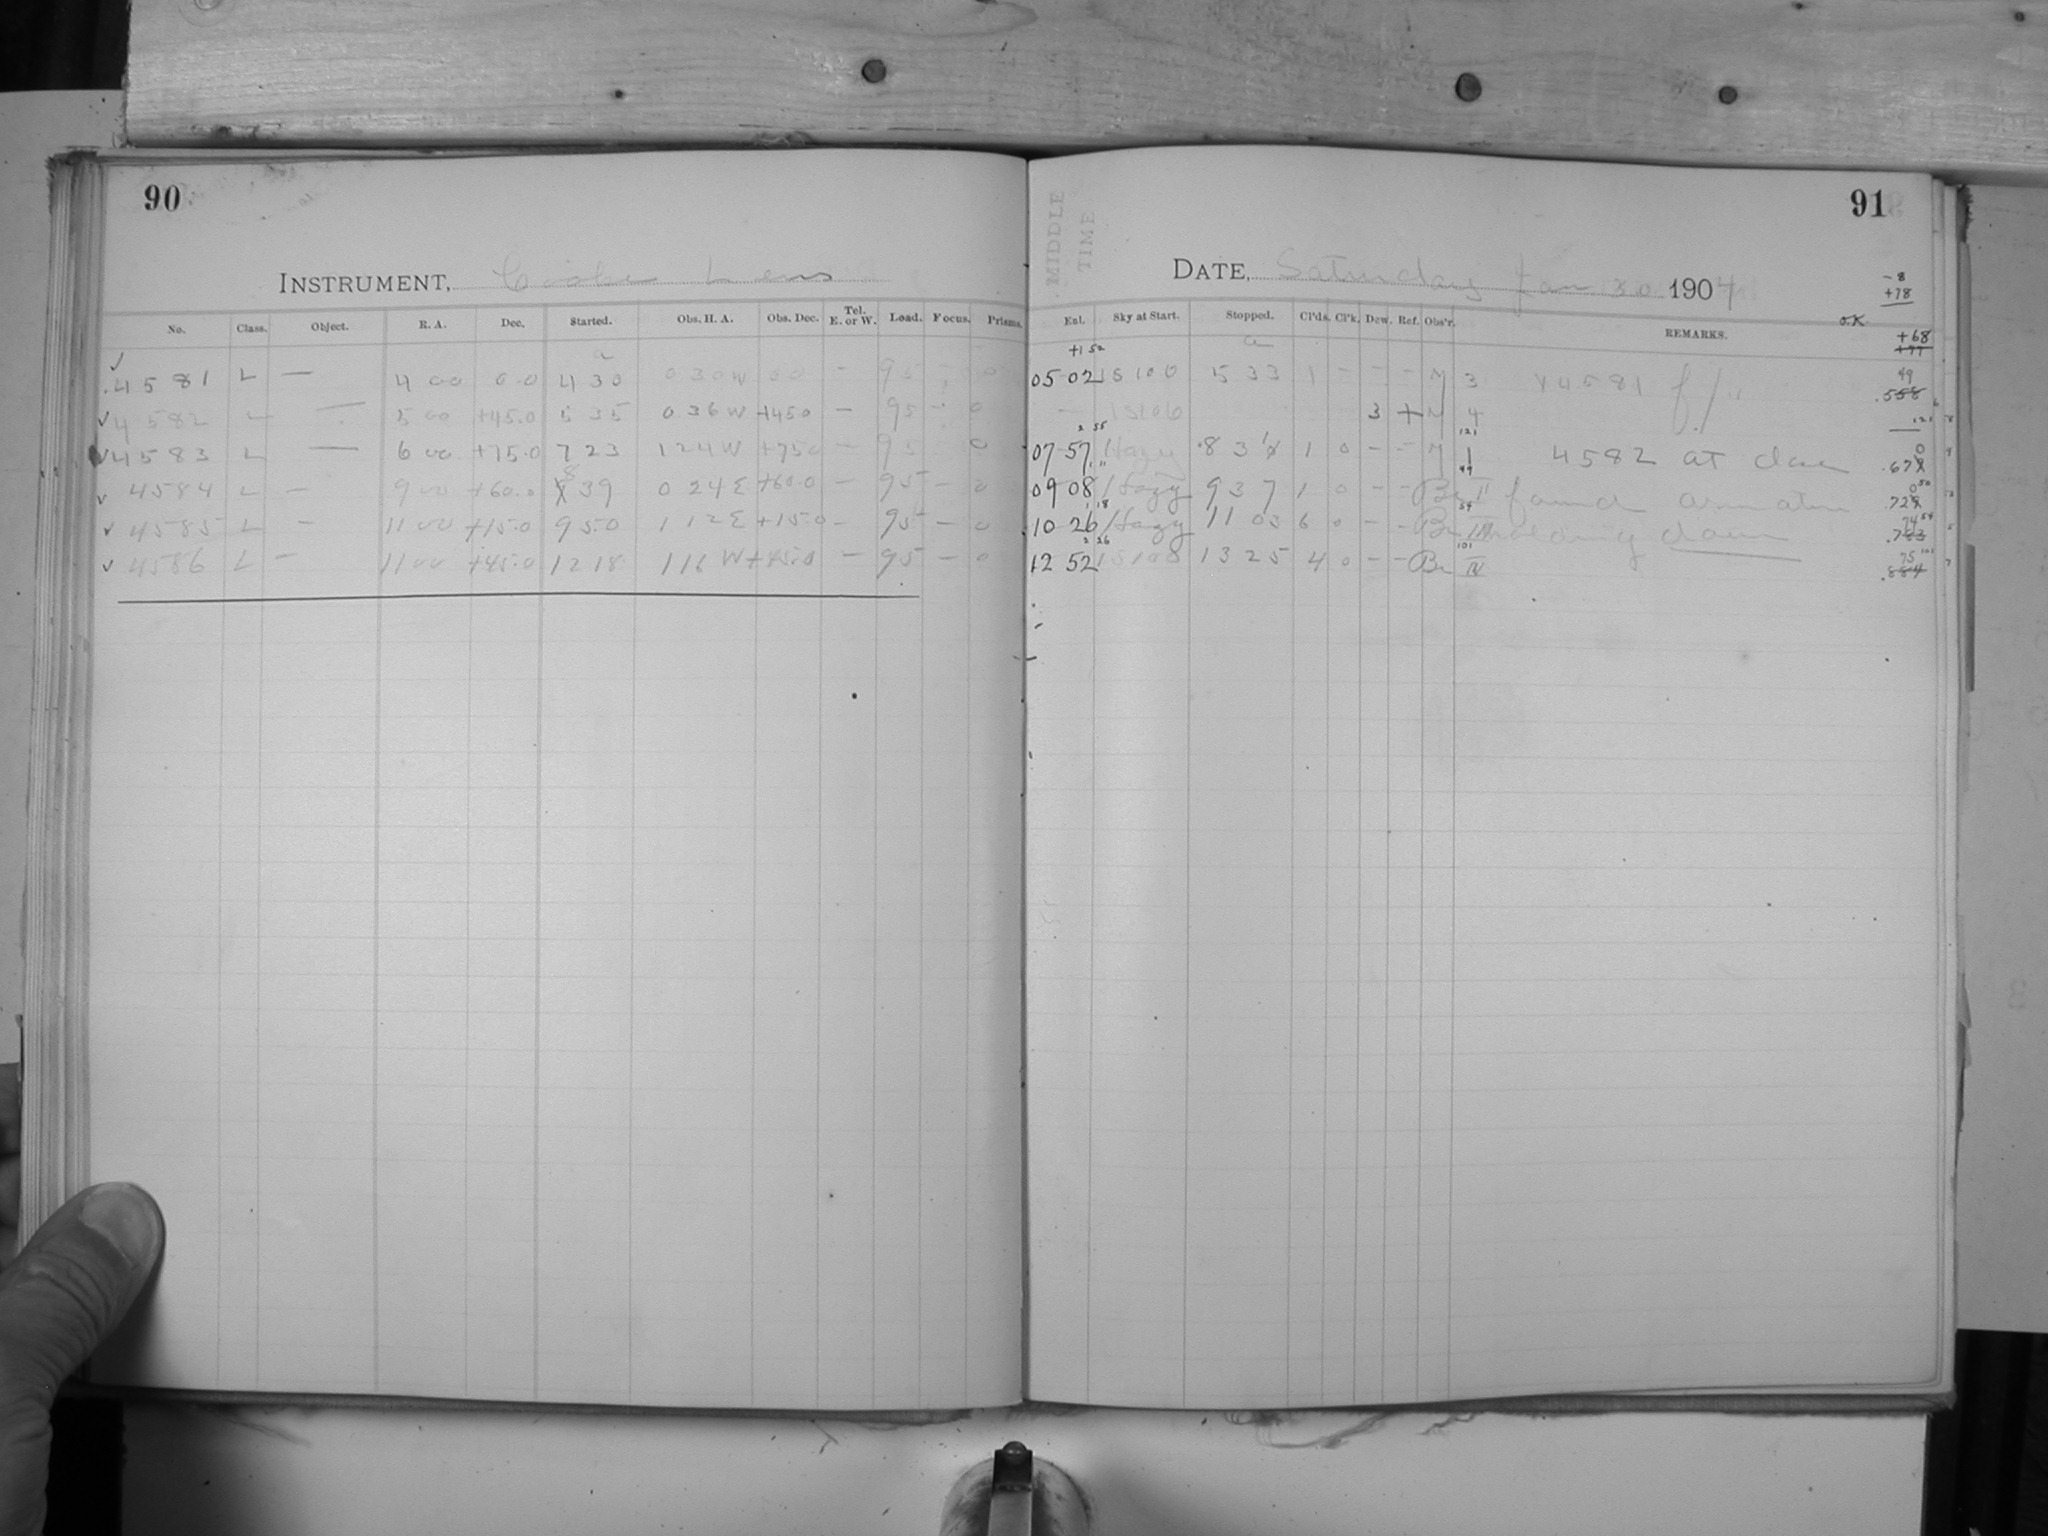 90
INSTRUMENT, Cooke Lens
No. Class. Object. R. A. Dec. Started. Obs. H. A. Obs. Dec. Tel. E. or W. Load. Focus. Prisms.
a
4581 L — 4 00 0.0 4 30 0 30 W 0 0 – 95 0
4582 L — 5 00 +45.0 5 35 0 36 W +45.0 – 95 – 0
4583 L — 6 00 +75.0 7 23 1 24 W +75.0 – 95 0
4584 L – 9 00 +60.0 8 39 0 24 E +60.0 – 95 – 0
4585 L – 11 00 +15.0 9 50 1 12 E +15.0 – 95 – 0
4586 L – 11 00 +45.0 12 18 1 16 W +45.0 – 95 – 0
91
MIDDLE
TIME
DATE, Saturday Jan 30 1904
-8
+78
O.K.
+68
Ent. Sky at Start. Stopped. Cl'ds. Cl'k. Dew. Ref. Obs'r. REMARKS.
+1 52 a
05 02 IS100 5 33 1 – – – M 3 4581 49
— IS106 3 + M 4
2 55 121
07 57 Hazy 8 31 1 0 – – M 1 4582 at close .67
09 08 Hazy 9 37 1 0 – – Br II found .72
1 18 54
10 26 Hazy 11 03 6 0 – – Br III holding down 74
2 26 101
12 52 IS108 13 25 4 0 – – Br IV 75